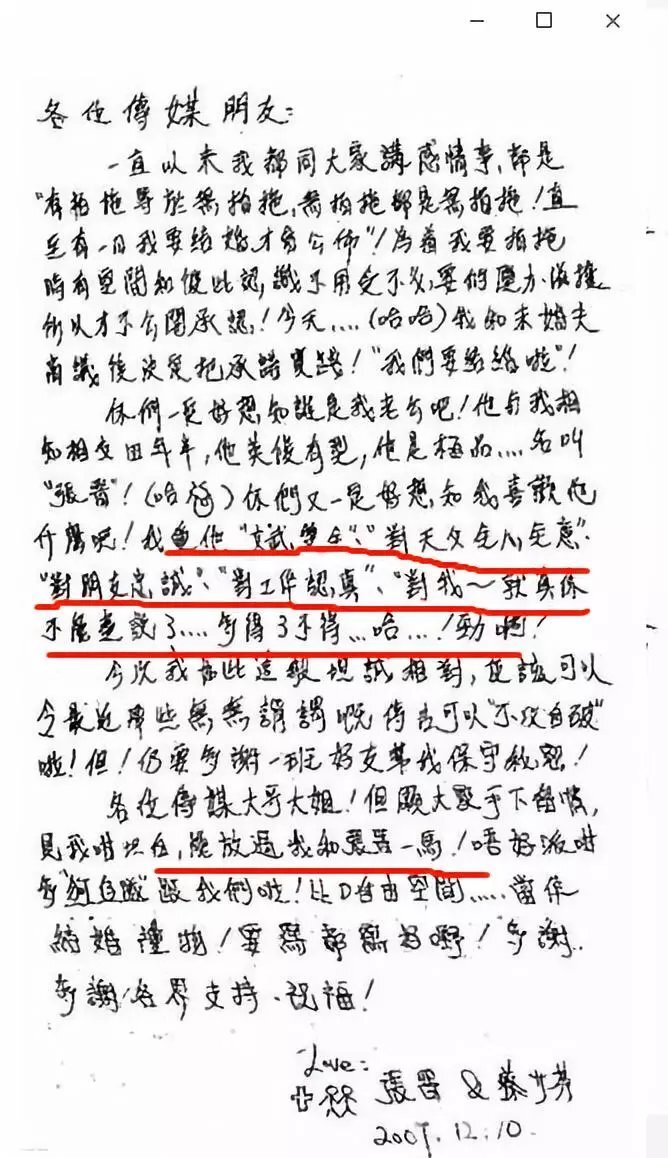 各位傳媒朋友：
一直以來我都同大家講感情事,都是
"有拍拖等於無拍拖,無拍拖都是無拍拖！直
至有一日我要結婚才會公佈"！為着我要拍拖
時有空間和彼此認識不用受不必要的壓力、
所以才不公開承認！今天....(哈哈)我和未婚夫
商議後決定把承諾實踐！"我們要結婚啦"！
你們一定好想知誰是我老公吧！他与我相
知相交四年半,他英俊有型,他是極品....名叫
"張晉"！(哈哈)你們又一定好想知我喜歡他
什麼呢！我愛他"文武雙全"、"對天父全心全意"、
"對朋友忠誠"、"對工作認真"、"對我～就真係
不能盡說了....多得了不得...哈...！勁啊！
今次我如此這般坦誠相對,應該可以
令最近那些無無謂謂嘅傳言可以"不攻自破"
啦！但！仍要多謝一班好友幫我保守秘密！
各位傳媒大哥大姐！但願大家手下留情,
見我咁坦白,能放過我和張晉一馬！唔好派咁
多"狗仔隊"跟我們啦！比D自由空間.....當作
結婚禮物！要寫都寫好嘢！多謝..
多謝各界支持、祝福！
Love:
張晉 & 蔡少芬
2007.12.10.